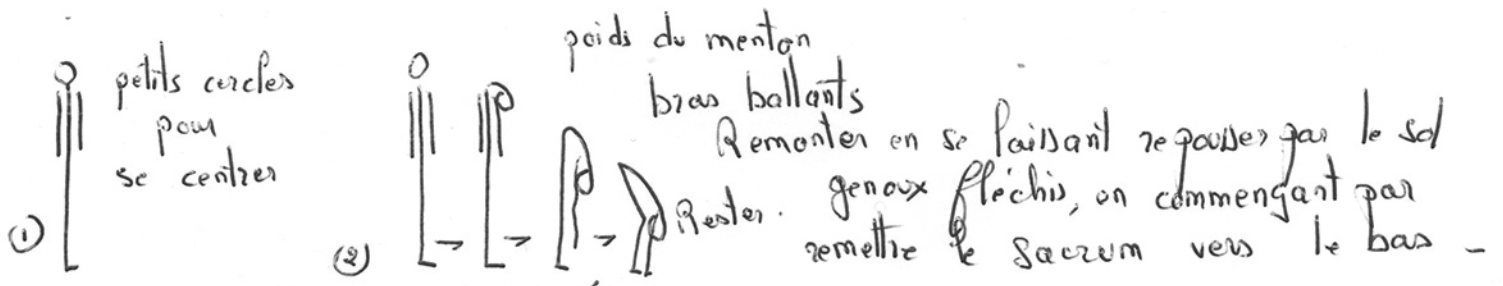 petits cercles
pour
se centrer
①
②
poids du menton
bras ballants
Rester.
Remonter en se laissant repousser par le sol
genoux fléchis, en commençant par
remettre le sacrum vers le bas -